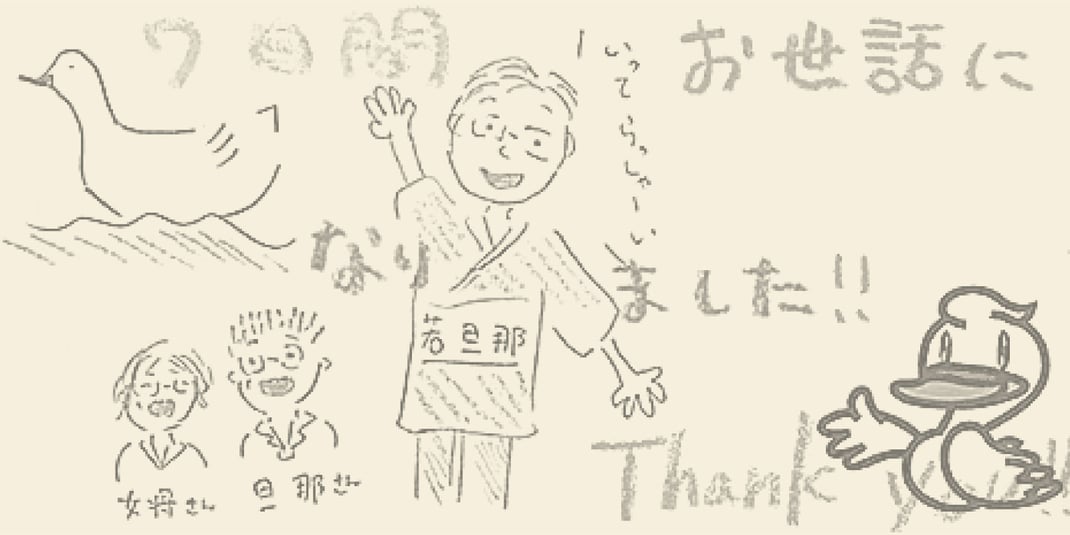 7日間 お世話に
なりました!!
Thank you!!
いってらっしゃーい
若旦那
女将さん
旦那さん